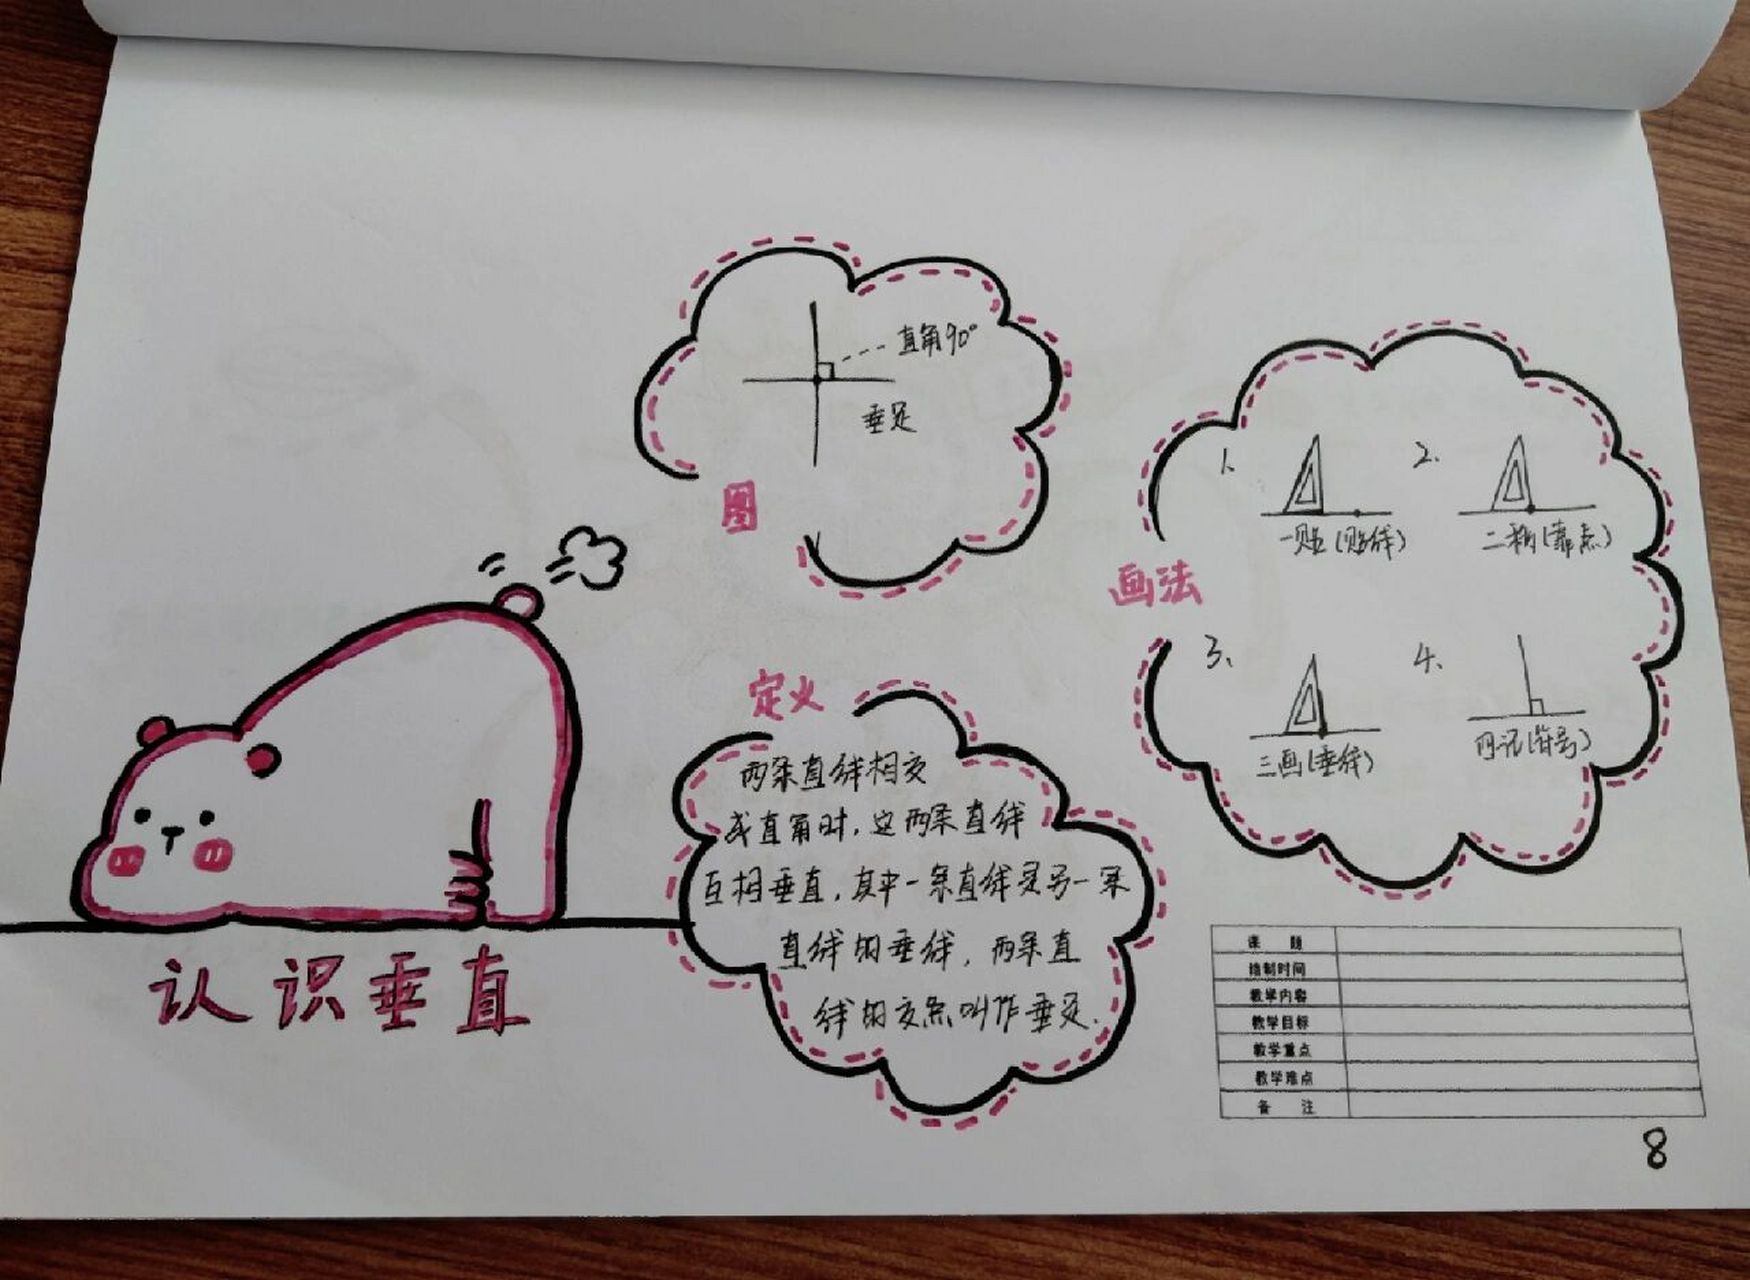 直角90°
垂足
图
定义
两条直线相交
成直角时，这两条直线
互相垂直，其中一条直线是另一条
直线的垂线，两条直
线的交点叫作垂足.
画法
1、
一贴(贴线)
2、
二靠(靠点)
3、
三画(垂线)
4、
四记(符号)
认识垂直
课 题
绘制时间
教学内容
教学目标
教学重点
教学难点
备 注
8